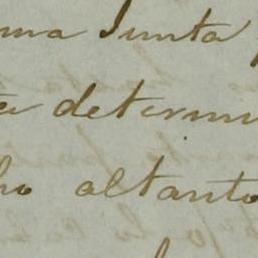 una Junta
determi
ho altanto